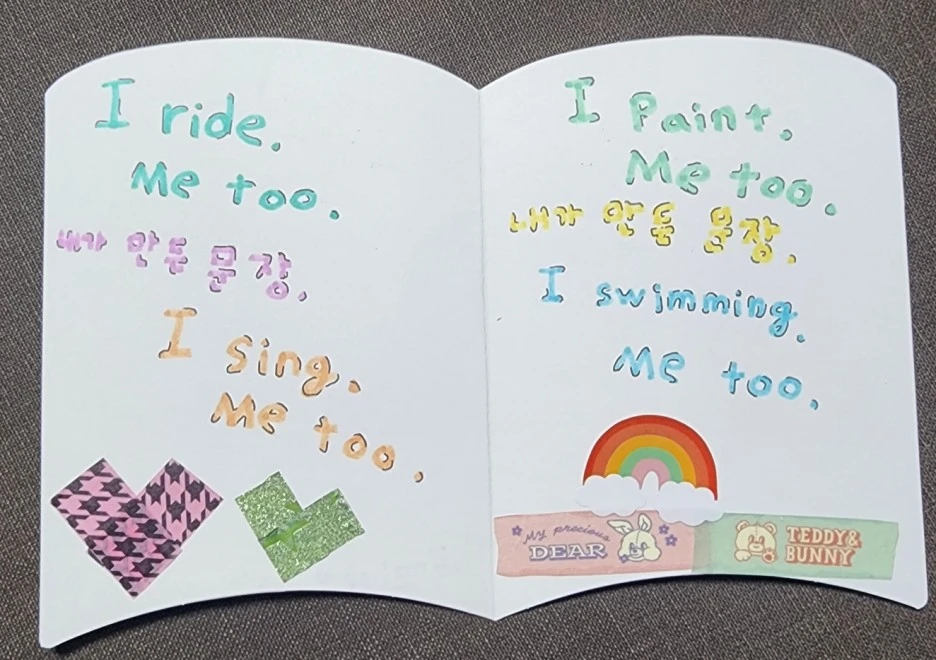 I ride.
Me too.
내가 만든 문장.
I sing.
Me too.
I Paint.
Me too.
내가 만든 문장.
I swimming.
Me too.
My precious
DEAR
TEDDY&
BUNNY